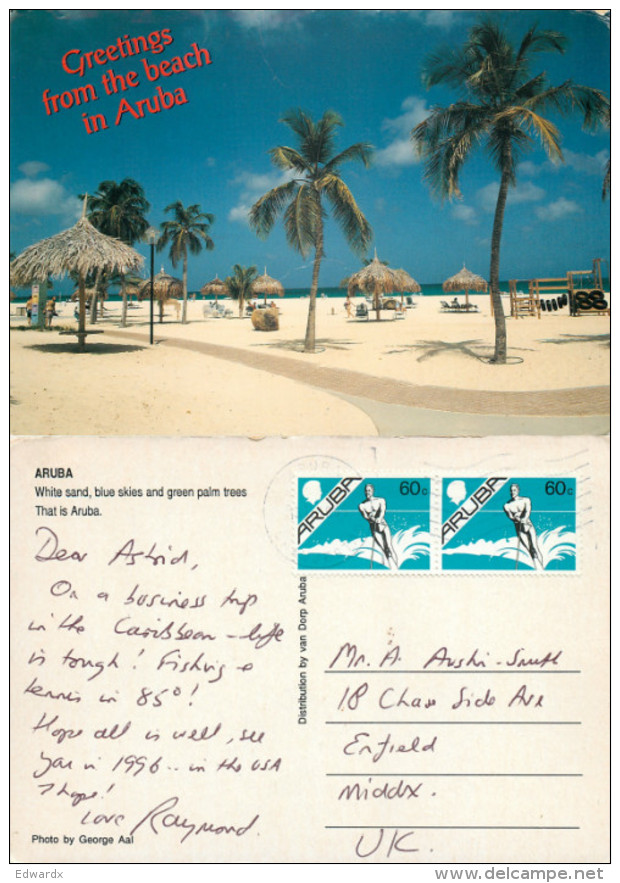 Greetings
from the beach
in Aruba
ARUBA
White sand, blue skies and green palm trees
That is Aruba.
ARUBA 60c
ARUBA 60c
Distribution by van Dorp Aruba
Dear Astrid,
On a business trip
in the Caribbean - life
is tough! Fishing &
tennis in 85°!
Hope all is well, see
you in 1996... in the USA
I hope!
Love Raymond.
Photo by George Aal
A. Austin-Smith
18 Chase Side Ave
Enfield
Middx.
UK.
Edwardx
www.delcampe.net